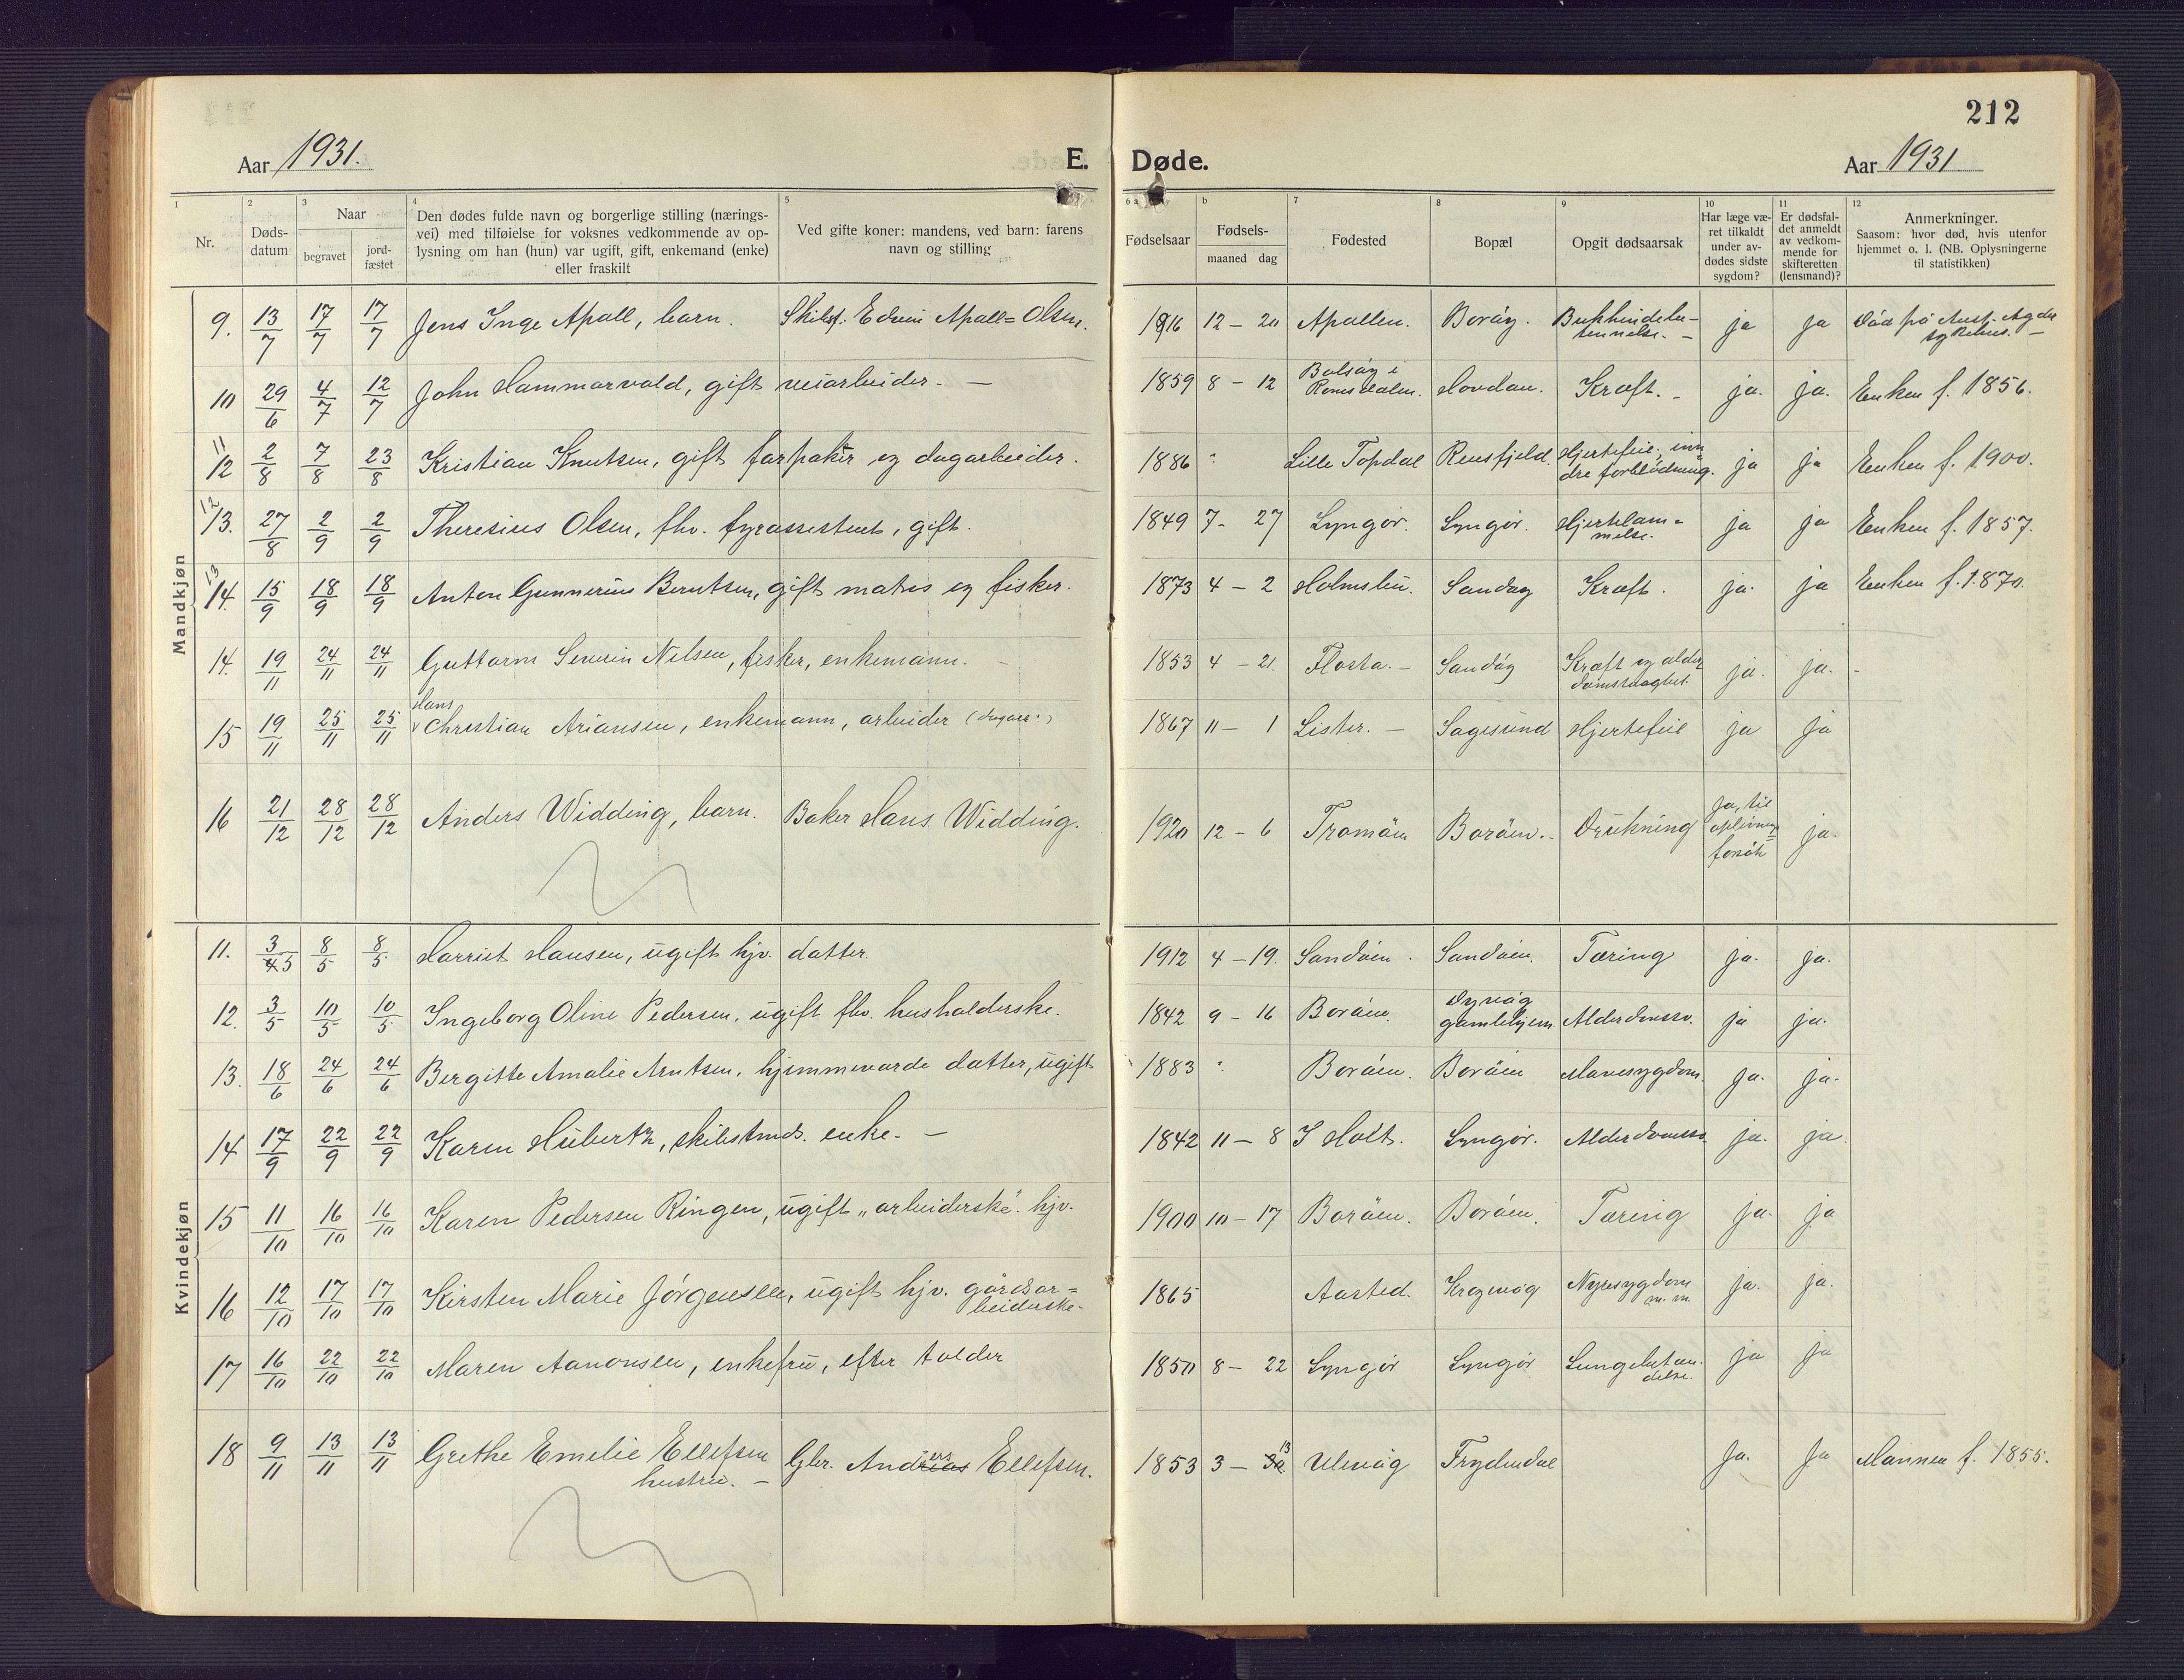 212
Aar 1931.
E. Døde.
Aar 1931
1 2 3 4 5 6 a b 7 8 9 10 11 12
Nr.
Døds-
datum
Naar
begravet
jord-
fæstet
Den dødes fulde navn og borgerlige stilling (nærings-
vei) med tilføielse for voksnes vedkommende av op-
lysning om han (hun) var ugift, gift, enkemand (enke)
eller fraskilt
Ved gifte koner: mandens, ved barn: farens
navn og stilling
Fødselsaar
Fødsels-
maaned dag
Fødested
Bopæl
Opgit dødsaarsak
Har læge væ-
ret tilkaldt
under av-
dødes sidste
sygdom?
Er dødsfal-
det anmeldt
av vedkom-
mende for
skifteretten
(lensmand)?
Anmerkninger.
Saasom: hvor død, hvis utenfor
hjemmet o. l. (NB. Oplysningerne
til statistikken)
Mandkjøn
9. 13/7 17/7 17/7 Jens Inge Apall, barn. Skibsf. Edvin Apall=Olsen. 1916 12 - 20 Apallen. Borøy. Bukhindebe-
tennelse. - ja ja Død på Aust-Agder
sykehus. -
10 29/6 4/7 12/7 John Hammarvold, gift veiarbeider. - 1859 8 - 12 Bolsøy i
Romsdalen. Hovdan. Kræft. - ja. ja. Enken f. 1856.
11
12 2/8 7/8 23/8 Kristian Knutsen, gift farpaker og dagarbeider. 1886 " Lille Topdal Reusfjeld. Hjertefeil, inn-
dre forblødning. ja ja Enken f. 1900.
12
13. 27/8 2/9 2/9 Theresius Olsen, fhv. fyrassistent, gift. 1849 7 - 27 Lyngør. Lyngør. Hjertelam=
melse. ja ja Enken f. 1857.
13
14. 15/9 18/9 18/9 Anton Gunnerius Berntsen, gift matros og fisker. 1873 4 - 2 Holmsbu. Sandøy Kræft. ja. ja Enken f. 1870.
14. 19/11 24/11 24/11 Guttorm Severin Nilsen, fisker, enkemann. - 1853 4 - 21. Flosta. - Sandøy Kræft og alder
domssvaghet. ja. ja. -
15 19/11 25/11 25/11 Hans
Christian Ariansen, enkemann, arbeider (dagarb.) 1867 11 - 1 Lister. - Sagesund Hjertefeil ja ja
16 21/12 28/12 28/12 Anders Widding, barn. Baker Hans Widding. 1920 12 - 6 Tromøen Borøen. - Drukning Ja, til
oplivnings=
forsøk ja.
Kvindekjøn
11. 3/45 8/5 8/5 Harriet Hansen, ugift hjv. datter. 1912 4 - 19. Sandøen. Sandøen. Tæring ja. ja.
12. 3/5 10/5 10/5 Ingeborg Oline Pedersen, ugift fhv. husholderske. 1842 9 - 16 Borøen. Dyvåg
gamlehjem Alderdomssv. ja ja.
13. 18/6 24/6 24/6 Bergitte Amalie Arntsen, hjemmevæerde datter, ugift 1883 " Borøen. Borøen Mavesygdom. ja. ja.
14 17/9 22/9 22/9 Karen Hubertz, skibstmds. enke. - 1842 11 - 8 I Holt. Lyngør. Alderdomssv. ja. ja.
15 11/10 16/10 16/10 Karen Pedersen Ringen, ugift "arbeiderske". hjv. 1900 10 - 17 Borøen. Borøen. Tæring ja. ja
16 12/10 17/10 17/10 Kirsten Marie Jørgensen, ugift hjv. gårdsar=
beiderske. 1865 Aasted. Krogvåg Nyresygdom
m. m. ja. ja.
17 16/10 22/10 22/10 Maren Aanonsen, enkefru, efter tolder 1850 8 - 22 Lyngør Lyngør Lungebetæn-
delse. ja ja
18 9/11 13/11 13/11 Grethe Emelie Ellefsen
hustru. - Gbr. Anders Ellefsen. 1853 3 - 13 Ulevåg Frydendal Ja. Ja Mannen f. 1855.